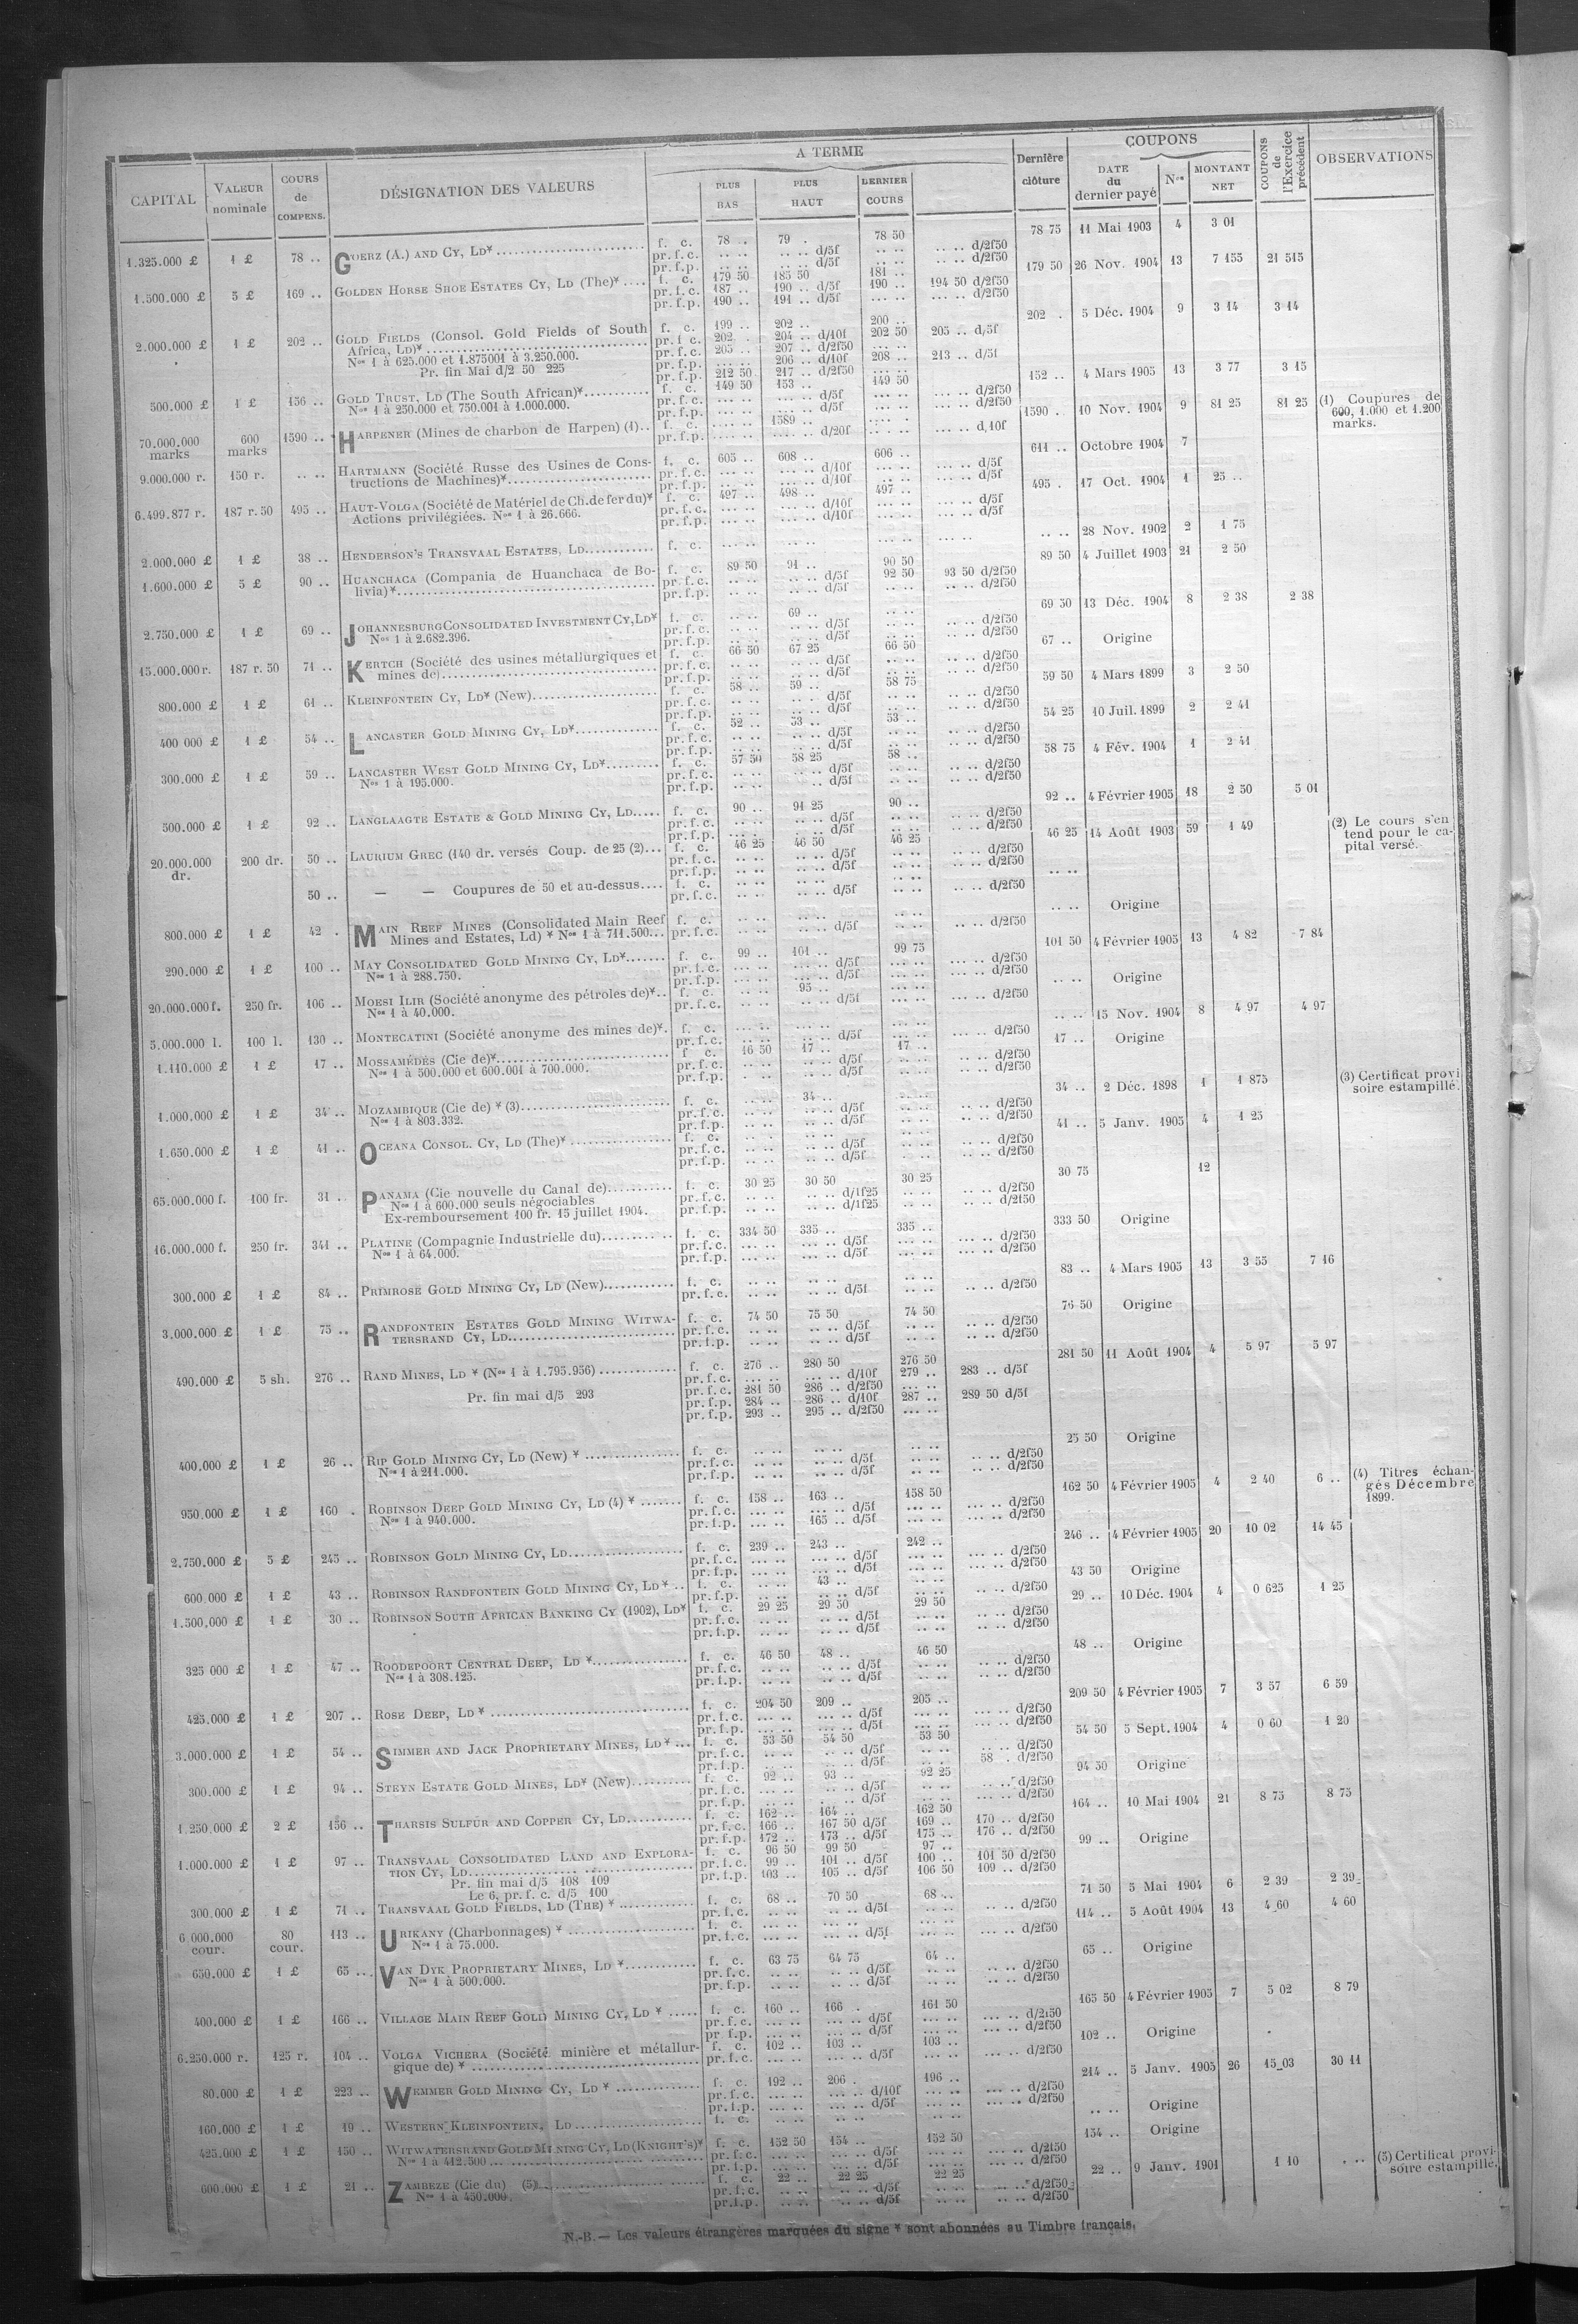 CAPITAL | VALEUR nominale | COURS de COMPENS. | DÉSIGNATION DES VALEURS | A TERME | PLUS BAS | PLUS HAUT | DERNIER COURS | Dernière clôture | COUPONS | DATE du dernier payé | Nos | MONTANT NET | COUPONS de l'Exercice précédent | OBSERVATIONS
1.325.000 £ 1 £ 78 .. GOERZ (A.) AND CY, LD* f. c. 78 .. 79 . 78 50 78 75 11 Mai 1903 4 3 01
pr. f. c. .. .. .. .. d/5f .. .. .. .. d/2f50
pr. f. p. .. .. .. .. d/5f .. .. .. .. d/2f50
1.500.000 £ 5 £ 169 .. GOLDEN HORSE SHOE ESTATES CY, LD (The)* f. c. 179 50 185 50 181 .. 179 50 26 Nov. 1904 13 7 155 21 515
pr. f. c. 187 .. 190 .. d/5f 190 .. 194 50 d/2f50
pr. f. p. 190 .. 191 .. d/5f ... .. ... .. d/2f50
2.000.000 £ 1 £ 202 .. GOLD FIELDS (Consol. Gold Fields of South f. c. 199 .. 202 .. 200 .. 202 . 5 Déc. 1904 9 3 14 3 14
Africa, LD)* pr. f. c. 202 . 204 .. d/10f 202 50 205 .. d/5f
Nos 1 à 625.000 et 1.875001 à 3.250.000. pr. f. c. 205 .. 207 .. d/2f50 ... ..
Pr. fin Mai d/2 50 225 pr. f. p. ... .. 206 .. d/10f 208 .. 213 .. d/5f
pr. f. p. 212 50 217 .. d/2f50 ... ..
500.000 £ 1 £ 156 .. GOLD TRUST, LD (The South African)* f. c. 149 50 153 .. 149 50 152 .. 4 Mars 1905 13 3 77 3 15
Nos 1 à 250.000 et 750.001 à 1.000.000. pr. f. c. ... .. ... .. d/5f ... .. ... .. d/2f50
pr. f. p. ... .. ... .. d/5f ... .. ... .. d/2f50
70.000.000 marks 600 marks 1590 .. HARPENER (Mines de charbon de Harpen) (1).. f. c. 1589 .. 1590 .. 10 Nov. 1904 9 81 25 81 25 (1) Coupures de 600, 1.000 et 1.200 marks.
pr. f. p. ... .. ... .. d/20f ... .. ... .. d/10f
9.000.000 r. 150 r. .. .. HARTMANN (Société Russe des Usines de Cons- f. c. 605 .. 608 .. 606 .. 611 .. Octobre 1904 7
tructions de Machines)* pr. f. c. ... .. ... .. d/10f ... .. ... .. d/5f
pr. f. p. ... .. ... .. d/10f ... .. ... .. d/5f
6.499.877 r. 187 r. 50 495 .. HAUT-VOLGA (Société de Matériel de Ch. de fer du)* f. c. 497 .. 498 .. 497 .. 495 . 17 Oct. 1904 1 25 ..
Actions privilégiées. Nos 1 à 26.666. pr. f. c. ... .. ... .. d/10f ... .. ... .. d/5f
pr. f. p. ... .. ... .. d/10f ... .. ... .. d/5f
2.000.000 £ 1 £ 38 .. HENDERSON'S TRANSVAAL ESTATES, LD f. c. ... .. ... .. ... .. ... .. .. .. 28 Nov. 1902 2 1 75
1.600.000 £ 5 £ 90 .. HUANCHACA (Compania de Huanchaca de Bo- f. c. 89 50 91 .. 90 50 89 50 4 Juillet 1903 21 2 50
livia)* pr. f. c. .. .. .. .. d/5f 92 50 93 50 d/2f50
pr. f. p. .. .. .. .. d/5f .. .. .. .. d/2f50
2.750.000 £ 1 £ 69 .. JOHANNESBURG CONSOLIDATED INVESTMENT CY, LD* f. c. 69 .. .. .. 69 50 13 Déc. 1904 8 2 38 2 38
Nos 1 à 2.682.396. pr. f. c. .. .. .. .. d/5f .. .. .. .. d/2f50
pr. f. p. .. .. .. .. d/5f .. .. .. .. d/2f50
15.000.000 r. 187 r. 50 71 .. KERTCH (Société des usines métallurgiques et f. c. 66 50 67 25 66 50 67 .. Origine
mines de) pr. f. c. .. .. .. .. d/5f .. .. .. .. d/2f50
pr. f. p. .. .. .. .. d/5f .. .. .. .. d/2f50
800.000 £ 1 £ 61 .. KLEINFONTEIN CY, LD* (New) f. c. 58 .. 59 .. 58 75 59 50 4 Mars 1899 3 2 50
pr. f. c. .. .. .. .. d/5f .. .. .. .. d/2f50
pr. f. p. .. .. .. .. d/5f .. .. .. .. d/2f50
400 000 £ 1 £ 54 .. LANCASTER GOLD MINING CY, LD* f. c. 52 .. 53 .. 53 .. 54 25 10 Juil. 1899 2 2 41
pr. f. c. .. .. .. .. d/5f .. .. .. .. d/2f50
pr. f. p. .. .. .. .. d/5f .. .. .. .. d/2f50
300.000 £ 1 £ 59 .. LANCASTER WEST GOLD MINING CY, LD* f. c. 57 50 58 25 58 .. 58 75 4 Fév. 1904 1 2 41
Nos 1 à 195.000. pr. f. c. .. .. .. .. d/5f .. .. .. .. d/2f50
pr. f. p. .. .. .. .. d/5f .. .. .. .. d/2f50
500.000 £ 1 £ 92 .. LANGLAAGTE ESTATE & GOLD MINING CY, LD f. c. 90 .. 91 25 90 .. 92 .. 4 Février 1905 18 2 50 5 01
pr. f. c. .. .. .. .. d/5f .. .. .. .. d/2f50
pr. f. p. .. .. .. .. d/5f .. .. .. .. d/2f50
20.000.000 dr. 200 dr. 50 .. LAURIUM GREC (140 dr. versés Coup. de 25 (2)... f. c. 46 25 46 50 46 25 46 25 14 Août 1903 59 1 49 (2) Le cours s'entend pour le capital versé.
pr. f. c. .. .. .. .. d/5f .. .. .. .. d/2f50
pr. f. p. .. .. .. .. d/5f .. .. .. .. d/2f50
50 .. — — Coupures de 50 et au-dessus.... f. c. .. .. .. .. .. .. .. ..
pr. f. c. .. .. .. .. d/5f .. .. .. .. d/2f50
800.000 £ 1 £ 42 . MAIN REEF MINES (Consolidated Main Reef f. c. .. .. .. .. .. .. .. .. Origine
Mines and Estates, Ld) * Nos 1 à 711.500... pr. f. c. .. .. .. .. d/5f .. .. .. .. d/2f50
290.000 £ 1 £ 100 .. MAY CONSOLIDATED GOLD MINING CY, LD* f. c. 99 .. 101 .. 99 75 101 50 4 Février 1905 13 4 82 7 84
Nos 1 à 288.750. pr. f. c. ... .. ... .. d/5f ... .. ... .. d/2f50
pr. f. p. ... .. ... .. d/5f ... .. ... .. d/2f50
20.000.000 f. 250 fr. 106 .. MOESI ILIR (Société anonyme des pétroles de)*.. f. c. .. .. 95 .. ... .. .. .. Origine
Nos 1 à 40.000. pr. f. c. .. .. .. .. d/5f ... .. ... .. d/2f50
5.000.000 l. 100 l. 130 .. MONTECATINI (Société anonyme des mines de)*. f. c. ... .. ... .. ... .. .. .. 15 Nov. 1904 8 4 97 4 97
pr. f. c. ... .. ... .. d/5f ... .. ... .. d/2f50
1.110.000 £ 1 £ 17 .. MOSSAMÉDÈS (Cie de)* f. c. 16 50 17 .. 17 .. 17 .. Origine
Nos 1 à 500.000 et 600.001 à 700.000. pr. f. c. .. .. .. .. d/5f .. .. .. .. d/2f50
pr. f. p. .. .. .. .. d/5f .. .. .. .. d/2f50
1.000.000 £ 1 £ 34 .. MOZAMBIQUE (Cie de) * (3) f. c. 34 .. 34 .. 2 Déc. 1898 1 1 875 (3) Certificat provisoire estampillé.
Nos 1 à 803.332. pr. f. c. .. .. .. .. d/5f .. .. .. .. d/2f50
pr. f. p. .. .. .. .. d/5f .. .. .. .. d/2f50
1.650.000 £ 1 £ 41 .. OCEANA CONSOL. CY, LD (The)* f. c. .. .. .. .. .. .. 41 .. 5 Janv. 1905 4 1 25
pr. f. c. .. .. .. .. d/5f .. .. .. .. d/2f50
pr. f. p. .. .. .. .. d/5f .. .. .. .. d/2f50
65.000.000 f. 100 fr. 31 .. PANAMA (Cie nouvelle du Canal de) f. c. 30 25 30 50 30 25 30 75 12
Nos 1 à 600.000 seuls négociables pr. f. c. .. .. .. .. d/1f25 .. .. .. .. d/2f50
Ex-remboursement 100 fr. 15 juillet 1904. pr. f. p. .. .. .. .. d/1f25 .. .. .. .. d/2f50
16.000.000 f. 250 fr. 341 .. PLATINE (Compagnie Industrielle du) f. c. 334 50 335 .. 335 .. 333 50 Origine
Nos 1 à 64.000. pr. f. c. ... .. ... .. d/5f ... .. ... .. d/2f50
pr. f. p. ... .. ... .. d/5f ... .. ... .. d/2f50
300.000 £ 1 £ 84 .. PRIMROSE GOLD MINING CY, LD (New) f. c. .. .. .. .. .. .. 83 .. 4 Mars 1905 13 3 55 7 16
pr. f. c. .. .. .. .. d/5f .. .. .. .. d/2f50
3.000.000 £ 1 £ 75 .. RANDFONTEIN ESTATES GOLD MINING WITWA- f. c. 74 50 75 50 74 50 76 50 Origine
TERSRAND CY, LD pr. f. c. .. .. .. .. d/5f .. .. .. .. d/2f50
pr. f. p. .. .. .. .. d/5f .. .. .. .. d/2f50
490.000 £ 5 sh. 276 .. RAND MINES, LD * (Nos 1 à 1.795.956) f. c. 276 .. 280 50 276 50 281 50 11 Août 1904 4 5 97 5 97
pr. f. c. ... .. ... .. d/10f 279 .. 283 .. d/5f
Pr. fin mai d/5 293 pr. f. c. 281 50 286 .. d/2f50 ... ..
pr. f. p. 284 .. 286 .. d/10f 287 .. 289 50 d/5f
pr. f. p. 293 .. 295 .. d/2f50 ... ..
400.000 £ 1 £ 26 .. RIP GOLD MINING CY, LD (New) * f. c. .. .. .. .. .. .. 25 50 Origine
Nos 1 à 211.000. pr. f. c. .. .. .. .. d/5f .. .. .. .. d/2f50
pr. f. p. .. .. .. .. d/5f .. .. .. .. d/2f50
950.000 £ 1 £ 160 . ROBINSON DEEP GOLD MINING CY, LD (4) * f. c. 158 .. 163 .. 158 50 162 50 4 Février 1905 4 2 40 6 .. (4) Titres échangés Décembre 1899.
Nos 1 à 940.000. pr. f. c. ... .. ... .. d/5f ... .. ... .. d/2f50
pr. f. p. ... .. 165 .. d/5f ... .. ... .. d/2f50
2.750.000 £ 5 £ 245 .. ROBINSON GOLD MINING CY, LD f. c. 239 .. 243 .. 242 .. 246 .. 4 Février 1905 20 10 02 14 45
pr. f. c. ... .. ... .. d/5f ... .. ... .. d/2f50
pr. f. p. ... .. ... .. d/5f ... .. ... .. d/2f50
600 000 £ 1 £ 43 .. ROBINSON RANDFONTEIN GOLD MINING CY, LD* .. f. c. .. .. 43 .. .. .. 43 50 Origine
pr. f. p. .. .. .. .. d/5f .. .. .. .. d/2f50
1.500,000 £ 1 £ 30 .. ROBINSON SOUTH AFRICAN BANKING CY (1902), LD* f. c. 29 25 29 50 29 50 29 .. 10 Déc. 1904 4 0 625 1 25
pr. f. c. .. .. .. .. d/5f .. .. .. .. d/2f50
pr. f. p. .. .. .. .. d/5f .. .. .. .. d/2f50
325 000 £ 1 £ 47 .. ROODEPOORT CENTRAL DEEP, LD * f. c. 46 50 48 .. 46 50 48 .. Origine
Nos 1 à 308.125. pr. f. c. .. .. .. .. d/5f .. .. .. .. d/2f50
pr. f. p. .. .. .. .. d/5f .. .. .. .. d/2f50
425.000 £ 1 £ 207 .. ROSE DEEP, LD * f. c. 204 50 209 .. 205 .. 209 50 4 Février 1905 7 3 57 6 59
pr. f. c. ... .. ... .. d/5f ... .. ... .. d/2f50
pr. f. p. ... .. ... .. d/5f ... .. ... .. d/2f50
3.000.000 £ 1 £ 54 .. SIMMER AND JACK PROPRIETARY MINES, LD * ... f. c. 53 50 54 50 53 50 54 50 5 Sept. 1904 4 0 60 1 20
pr. f. c. .. .. .. .. d/5f .. .. .. .. d/2f50
pr. f. p. .. .. .. .. d/5f .. .. 58 . d/2f50
300.000 £ 1 £ 94 .. STEYN ESTATE GOLD MINES, LD* (New) f. c. 92 .. 93 .. 92 25 94 50 Origine
pr. f. c. .. .. .. .. d/5f .. .. .. .. d/2f50
pr. f. p. .. .. .. .. d/5f .. .. .. .. d/2f50
1.250.000 £ 2 £ 156 .. THARSIS SULFUR AND COPPER CY, LD f. c. 162 .. 164 .. 162 50 164 .. 10 Mai 1904 21 8 75 8 75
pr. f. c. 166 .. 167 50 d/5f 169 .. 170 .. d/2f50
pr. f. p. 172 .. 173 .. d/5f 175 .. 176 .. d/2f50
1.000.000 £ 1 £ 97 .. TRANSVAAL CONSOLIDATED LAND AND EXPLORA- f. c. 96 50 99 50 97 .. 99 .. Origine
TION CY, LD pr. f. c. 99 .. 101 .. d/5f 100 .. 101 50 d/2f50
Pr. fin mai d/5 108 109 pr. f. p. 103 .. 105 .. d/5f 106 50 109 .. d/2f50
Le 6, pr. f. c. d/5 100
300.000 £ 1 £ 71 .. TRANSVAAL GOLD FIELDS, LD (THE) * f. c. 68 .. 70 50 68 .. 71 50 5 Mai 1904 6 2 39 2 39
pr. f. c. .. .. .. .. d/5f .. .. .. .. d/2f50
6.000.000 cour. 80 cour. 113 .. URIKANY (Charbonnages) * f. c. ... .. ... .. ... .. 114 .. 5 Août 1904 13 4 60 4 60
Nos 1 à 75.000. pr. f. c. ... .. ... .. d/5f ... .. .. .. d/2f50
650.000 £ 1 £ 65 ... VAN DYK PROPRIETARY MINES, LD * f. c. 63 75 64 75 64 .. 65 .. Origine
Nos 1 à 500.000. pr. f. c. .. .. .. .. d/5f .. .. .. .. d/2f50
pr. f. p. .. .. .. .. d/5f .. .. .. .. d/2f50
400.000 £ 1 £ 166 .. VILLAGE MAIN REEF GOLD MINING CY, LD * f. c. 160 .. 166 . 161 50 165 50 4 Février 1905 7 5 02 8 79
pr. f. c. ... .. ... .. d/5f ... .. ... .. d/2f50
pr. f. p. ... .. ... .. d/5f ... .. ... .. d/2f50
6.250.000 r. 125 r. 104 .. VOLGA VICHERA (Société minière et métallur- f. c. 102 .. 103 .. 103 .. 102 .. Origine
gique de) * pr. f. c. ... .. ... .. d/5f ... .. ... .. d/2f50
80.000 £ 1 £ 223 .. WEMMER GOLD MINING CY, LD * f. c. 192 .. 206 . 196 .. 214 .. 5 Janv. 1905 26 15 03 30 11
pr. f. c. ... .. ... .. d/10f ... .. ... .. d/2f50
pr. f. p. ... .. ... .. d/5f ... .. ... .. d/2f50
160.000 £ 1 £ 19 .. WESTERN KLEINFONTEIN, LD f. c. .. .. .. .. .. .. .. .. Origine
425.000 £ 1 £ 150 .. WITWATERSRAND GOLD MINING CY, LD (KNIGHT'S)* f. c. 152 50 154 .. 152 50 154 .. Origine
Nos 1 à 412.500 pr. f. c. ... .. ... .. d/5f ... .. ... .. d/2f50
pr. f. p. ... .. ... .. d/5f ... .. ... .. d/2f50
600.000 £ 1 £ 21 .. ZAMBEZE (Cie du) (5) f. c. 22 .. 22 25 22 25 22 .. 9 Janv. 1901 1 10 . .. (5) Certificat provisoire estampillé.
Nos 1 à 450.000. pr. f. c. .. .. .. .. d/5f .. .. .. .. d/2f50
pr. f. p. .. .. .. .. d/5f .. .. .. .. d/2f50
N.-B. — Les valeurs étrangères marquées du signe * sont abonnées au Timbre français.